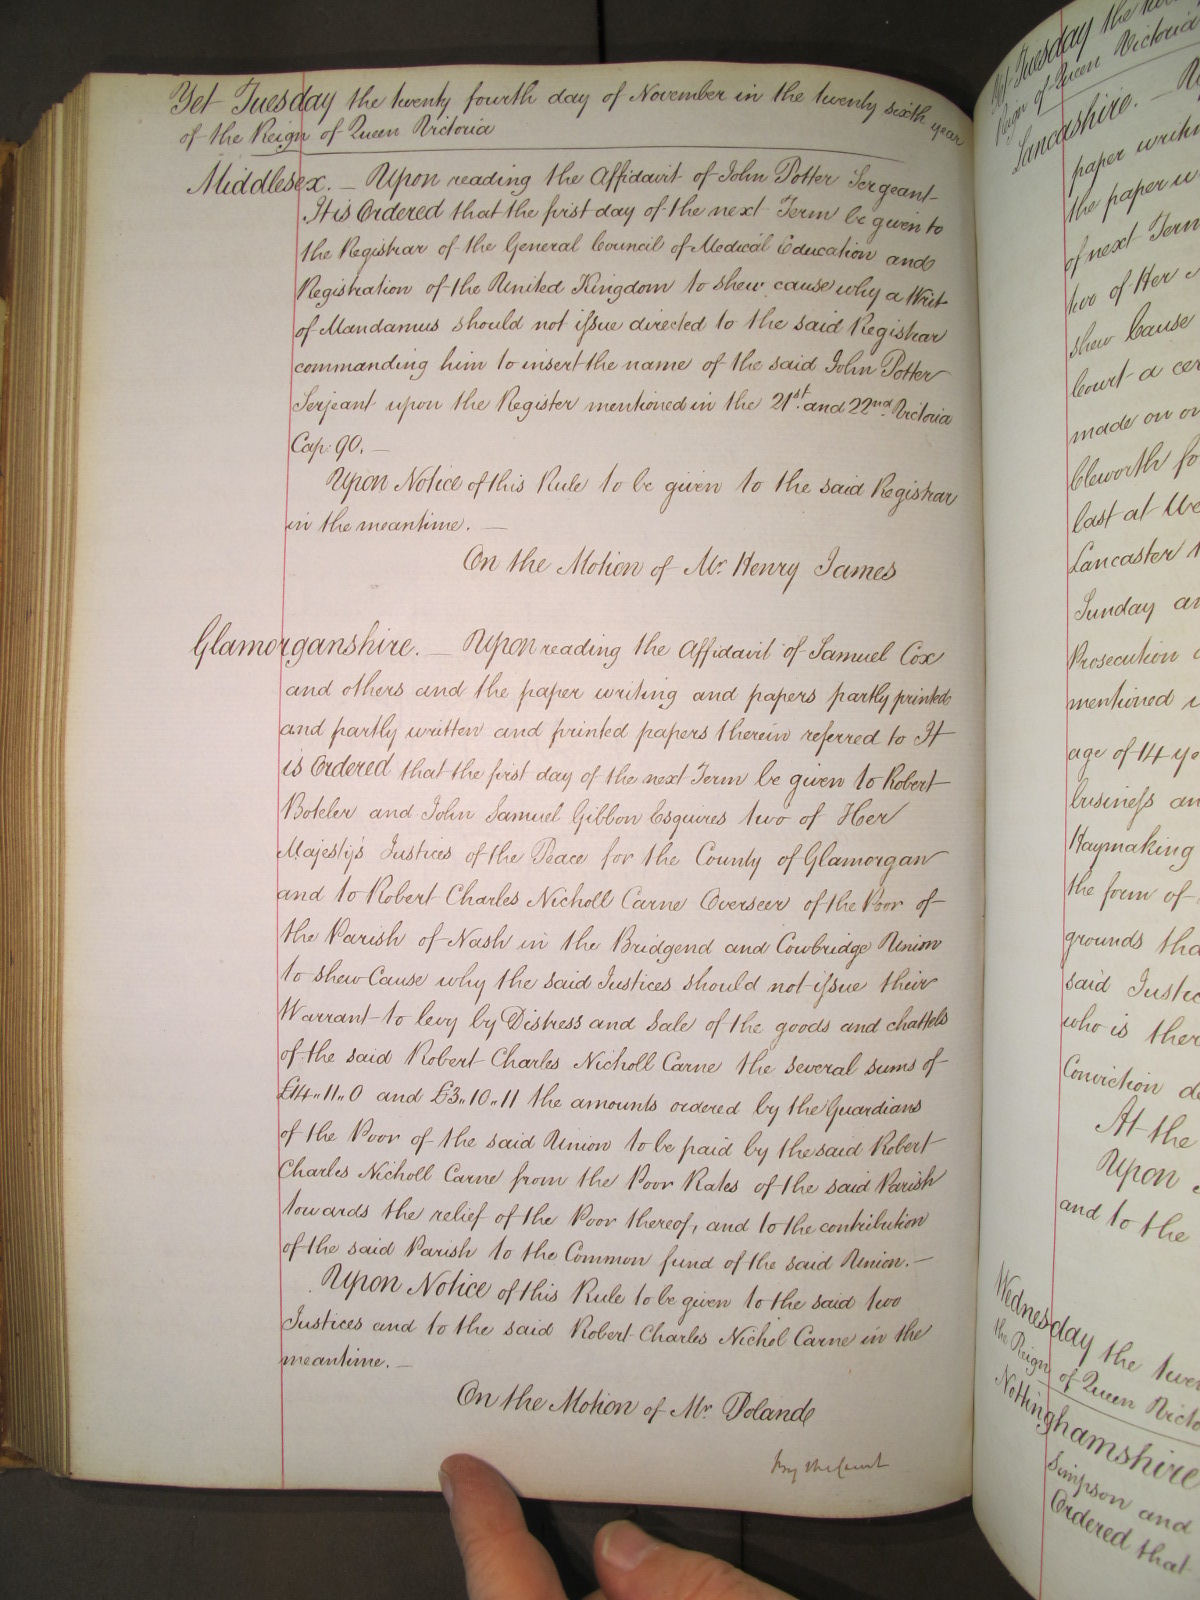 Yet Tuesday the twenty fourth day of November in the twenty sixth year
of the Reign of Queen Victoria
Middlesex. — Upon reading the Affidavit of John Potter Sergeant
It is Ordered that the first day of the next Term be given to
the Registrar of the General Council of Medical Education and
Registration of the United Kingdom to shew cause why a Writ
of Mandamus should not issue directed to the said Registrar
commanding him to insert the name of the said John Potter
Serjeant upon the Register mentioned in the 21st. and 22nd. Victoria
Cap: 90. —
Upon Notice of this Rule to be given to the said Registrar
in the meantime. —
On the Motion of Mr. Henry James
Glamorganshire. — Upon reading the Affidavit of Samuel Cox
and others and the paper writing and papers partly printed
and partly written and printed papers therein referred to It
is Ordered that the first day of the next Term be given to Robert
Boteler and John Samuel Gibbon Esquires two of Her
Majesty's Justices of the Peace for the County of Glamorgan
and to Robert Charles Nicholl Carne Overseer of the Poor of
the Parish of Nash in the Bridgend and Cowbridge Union
to shew Cause why the said Justices should not issue their
Warrant to levy by Distress and Sale of the goods and chattels
of the said Robert Charles Nicholl Carne the several sums of
£14..11..0 and £3..10..11 the amounts ordered by the Guardians
of the Poor of the said Union to be paid by the said Robert
Charles Nicholl Carne from the Poor Rates of the said Parish
towards the relief of the Poor thereof, and to the contribution
of the said Parish to the Common fund of the said Union. —
Upon Notice of this Rule to be given to the said two
Justices and to the said Robert Charles Nichol Carne in the
meantime. —
On the Motion of Mr. Poland
By the Court
Yet Tuesday the
Reign of Queen Victoria
Lancashire. —
paper
the paper
of next Term
two of Her
shew Cause
Court a
made on
Cleworth
last at
Lancaster
Sunday
Prosecution
mentioned
age of 14
business
Haymaking
the form of
grounds
said
who is
Conviction
At the
Upon
and to the
Wednesday the
the Reign of Queen
Nottinghamshire
Simpson and
Ordered that